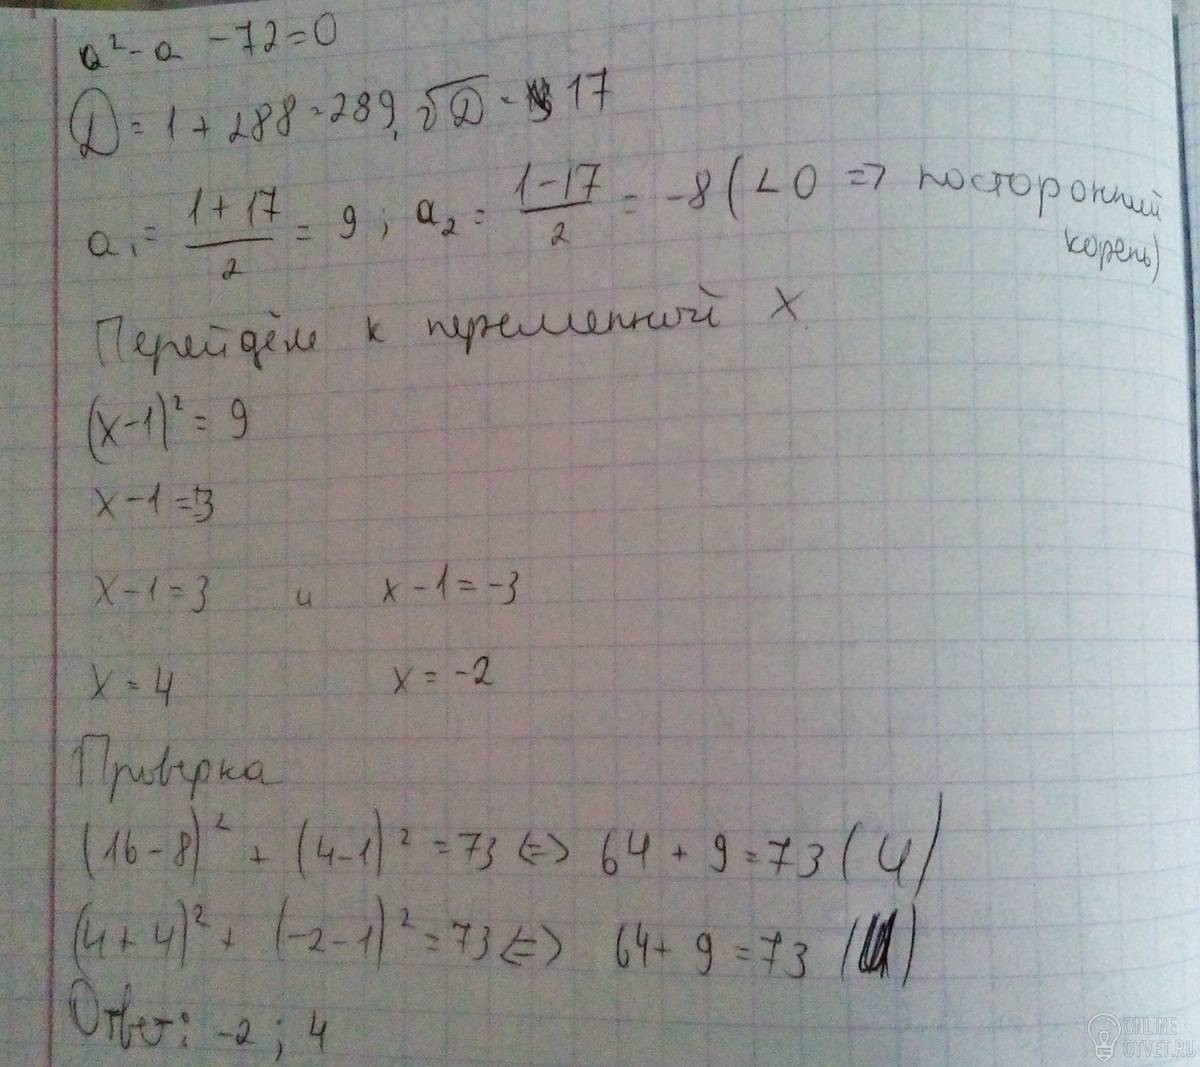 a² - a - 72 = 0
D = 1 + 288 = 289, √D = 17
a₁ = (1 + 17)/2 = 9; a₂ = (1 - 17)/2 = -8 (< 0 => посторонний
корень)
Перейдём к переменной x.
(x - 1)² = 9
x - 1 = ±3
x - 1 = 3 и x - 1 = -3
x = 4 x = -2
Проверка
(16 - 8)² + (4 - 1)² = 73 <=> 64 + 9 = 73 (И)
(4 + 4)² + (-2 - 1)² = 73 <=> 64 + 9 = 73 (И)
Ответ: -2; 4
ONLINE
OTVET.RU